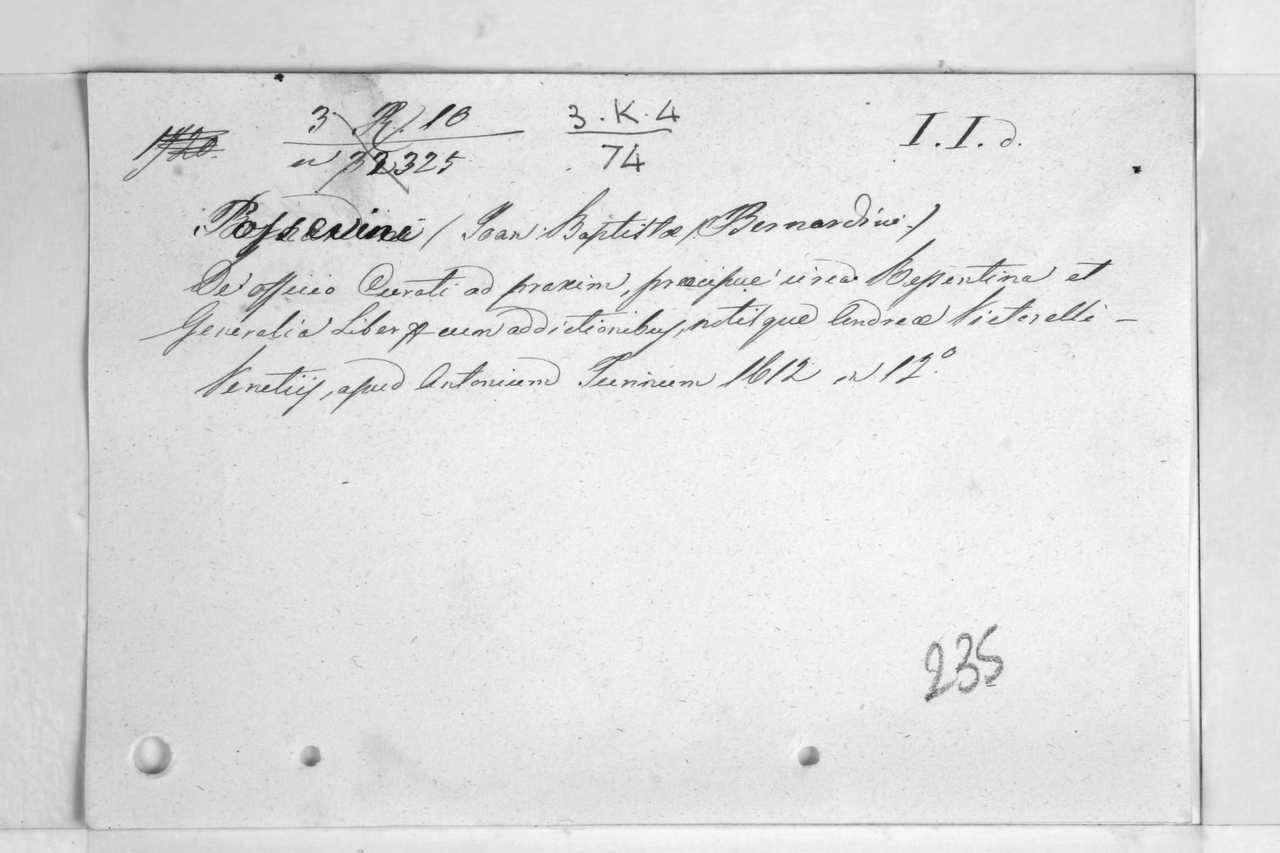 3. R. 10
3.K.4
I.I.d.
n 32325
74
Possevini (Joan: Baptistæ, Bernardini.)
De officio Curati ad praxim, præcipue circa Repentina et
Generalia Liber cum additionibus, notisque Andreæ Victorelli -
Venetiis, apud Antonium Turinum 1612 in 12°.
235